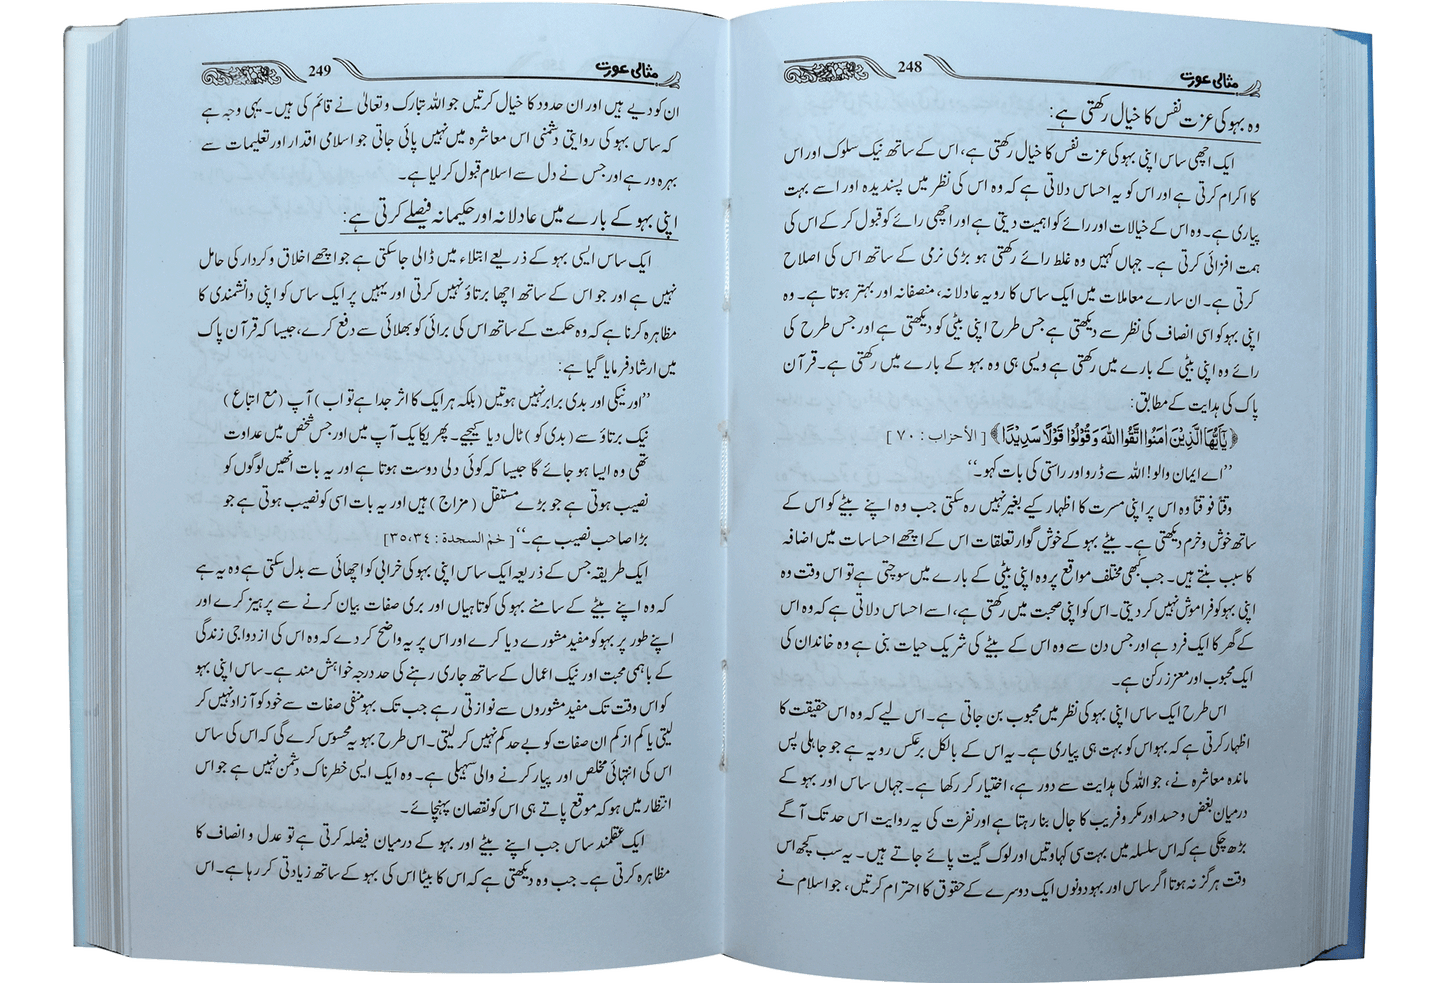 مثالی عورت 248
وہ بہو کی عزت نفس کا خیال رکھتی ہے:
ایک اچھی ساس اپنی بہو کی عزت نفس کا خیال رکھتی ہے، اس کے ساتھ نیک سلوک اور اس
کا اکرام کرتی ہے اور اس کو یہ احساس دلاتی ہے کہ وہ اس کی نظر میں پسندیدہ اور اسے بہت
پیاری ہے۔ وہ اس کے خیالات اور رائے کو اہمیت دیتی ہے اور اچھی رائے کو قبول کر کے اس کی
ہمت افزائی کرتی ہے۔ جہاں کہیں وہ غلط رائے رکھتی ہو بڑی نرمی کے ساتھ اس کی اصلاح
کرتی ہے۔ ان سارے معاملات میں ایک ساس کا رویہ عادلانہ، منصفانہ اور بہتر ہوتا ہے۔ وہ
اپنی بہو کو اسی انصاف کی نظر سے دیکھتی ہے جس طرح اپنی بیٹی کو دیکھتی ہے اور جس طرح کی
رائے وہ اپنی بیٹی کے بارے میں رکھتی ہے ویسی ہی وہ بہو کے بارے میں رکھتی ہے۔ قرآن
پاک کی ہدایت کے مطابق:
﴿یٰۤاَیُّهَا الَّذِیْنَ اٰمَنُوا اتَّقُوا اللّٰهَ وَقُوْلُوْا قَوْلًا سَدِیْدًا﴾ [الأحزاب: ۷۰]
’’اے ایمان والو! اللہ سے ڈرو اور راستی کی بات کہو۔‘‘
وقتاً فوقتاً وہ اس پر اپنی مسرت کا اظہار کیے بغیر نہیں رہ سکتی جب وہ اپنے بیٹے کو اس کے
ساتھ خوش و خرم دیکھتی ہے۔ بیٹے بہو کے خوش گوار تعلقات اس کے اچھے احساسات میں اضافہ
کا سبب بنتے ہیں۔ جب کبھی مختلف مواقع پر وہ اپنی بیٹی کے بارے میں سوچتی ہے تو اس وقت وہ
اپنی بہو کو فراموش نہیں کر دیتی۔ اس کو اپنی صحبت میں رکھتی ہے، اسے احساس دلاتی ہے کہ وہ اس
کے گھر کا ایک فرد ہے اور جس دن سے وہ اس کے بیٹے کی شریک حیات بنی ہے وہ خاندان کی
ایک محبوب اور معزز رکن ہے۔
اس طرح ایک ساس اپنی بہو کی نظر میں محبوب بن جاتی ہے۔ اس لیے کہ وہ اس حقیقت کا
اظہار کرتی ہے کہ بہو اس کو بہت ہی پیاری ہے۔ یہ اس کے بالکل برعکس رویہ ہے جو جاہلی پس
ماندہ معاشرہ نے، جو اللہ کی ہدایت سے دور ہے، اختیار کر رکھا ہے۔ جہاں ساس اور بہو کے
درمیان بغض و حسد اور مکر و فریب کا جال بنا رہتا ہے اور نفرت کی یہ روایت اس حد تک آگے
بڑھ چکی ہے کہ اس سلسلہ میں بہت سی کہاوتیں اور لوک گیت پائے جاتے ہیں۔ یہ سب کچھ اس
وقت ہرگز نہ ہوتا اگر ساس اور بہو دونوں ایک دوسرے کے حقوق کا احترام کرتیں، جو اسلام نے
مثالی عورت 249
ان کو دیے ہیں اور ان حدود کا خیال کرتیں جو اللہ تبارک وتعالیٰ نے قائم کی ہیں۔ یہی وجہ ہے
کہ ساس بہو کی روایتی دشمنی اس معاشرہ میں نہیں پائی جاتی جو اسلامی اقدار اور تعلیمات سے
بہرہ ور ہے اور جس نے دل سے اسلام قبول کر لیا ہے۔
اپنی بہو کے بارے میں عادلانہ اور حکیمانہ فیصلے کرتی ہے:
ایک ساس ایسی بہو کے ذریعے ابتلاء میں ڈالی جا سکتی ہے جو اچھے اخلاق و کردار کی حامل
نہیں ہے اور جو اس کے ساتھ اچھا برتاؤ نہیں کرتی اور یہیں پر ایک ساس کو اپنی دانشمندی کا
مظاہرہ کرنا ہے کہ وہ حکمت کے ساتھ اس کی برائی کو بھلائی سے دفع کرے، جیسا کہ قرآن پاک
میں ارشاد فرمایا گیا ہے:
’’اور نیکی اور بدی برابر نہیں ہوتیں (بلکہ ہر ایک کا اثر جدا ہے تو اب) آپ (مع اتباع)
نیک برتاؤ سے (بدی کو) ٹال دیا کیجیے۔ پھر یکایک آپ میں اور جس شخص میں عداوت
تھی وہ ایسا ہو جائے گا جیسا کہ کوئی دلی دوست ہوتا ہے اور یہ بات انھیں لوگوں کو
نصیب ہوتی ہے جو بڑے مستقل (مزاج) ہیں اور یہ بات اسی کو نصیب ہوتی ہے جو
بڑا صاحب نصیب ہے۔‘‘ [حٰمٓ السجدة: ۳۵،۳۴]
ایک طریقہ جس کے ذریعہ ایک ساس اپنی بہو کی خرابی کو اچھائی سے بدل سکتی ہے وہ یہ ہے
کہ وہ اپنے بیٹے کے سامنے بہو کی کوتاہیاں اور بری صفات بیان کرنے سے پرہیز کرے اور
اپنے طور پر بہو کو مفید مشورے دیا کرے اور اس پر یہ واضح کر دے کہ وہ اس کی ازدواجی زندگی
کے باہمی محبت اور نیک اعمال کے ساتھ جاری رہنے کی حد درجہ خواہش مند ہے۔ ساس اپنی بہو
کو اس وقت تک مفید مشوروں سے نوازتی رہے جب تک بہو منفی صفات سے خود کو آزاد نہیں کر
لیتی یا کم از کم ان صفات کو بے حد کم نہیں کر لیتی۔ اس طرح بہو یہ محسوس کرے گی کہ اس کی ساس
اس کی انتہائی مخلص اور پیار کرنے والی سہیلی ہے۔ وہ ایک ایسی خطرناک دشمن نہیں ہے جو اس
انتظار میں ہو کہ موقع پاتے ہی اس کو نقصان پہنچائے۔
ایک عقلمند ساس جب اپنے بیٹے اور بہو کے درمیان فیصلہ کرتی ہے تو عدل و انصاف کا
مظاہرہ کرتی ہے۔ جب وہ دیکھتی ہے کہ اس کا بیٹا اس کی بہو کے ساتھ زیادتی کر رہا ہے۔ اس